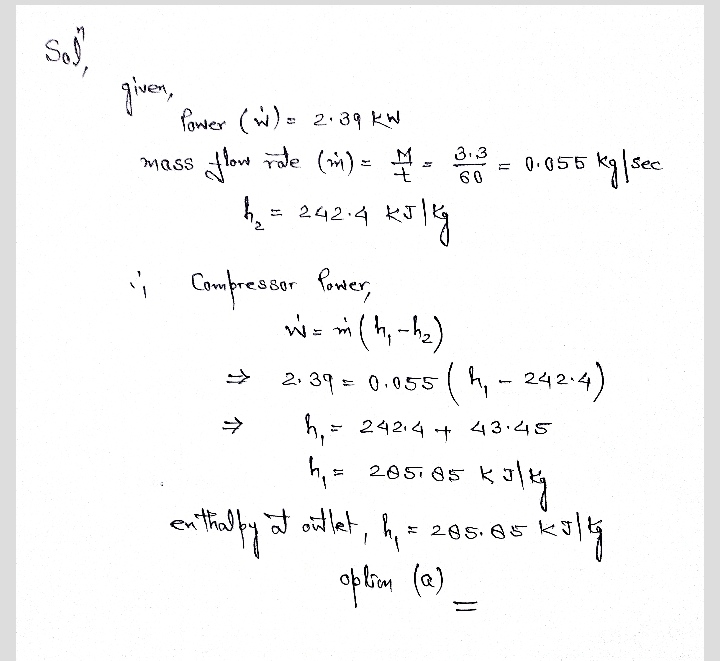 Solⁿ,
given,
Power (ẇ) = 2.39 KW
mass flow rate (ṁ) = M/t = 3.3/60 = 0.055 kg/sec
h₂ = 242.4 KJ/Kg
∵ Compressor Power,
ẇ = ṁ (h₁ - h₂)
⇒ 2.39 = 0.055 (h₁ - 242.4)
⇒ h₁ = 242.4 + 43.45
h₁ = 285.85 KJ/Kg
enthalpy at outlet, h₁ = 285.85 KJ/Kg
option (a)